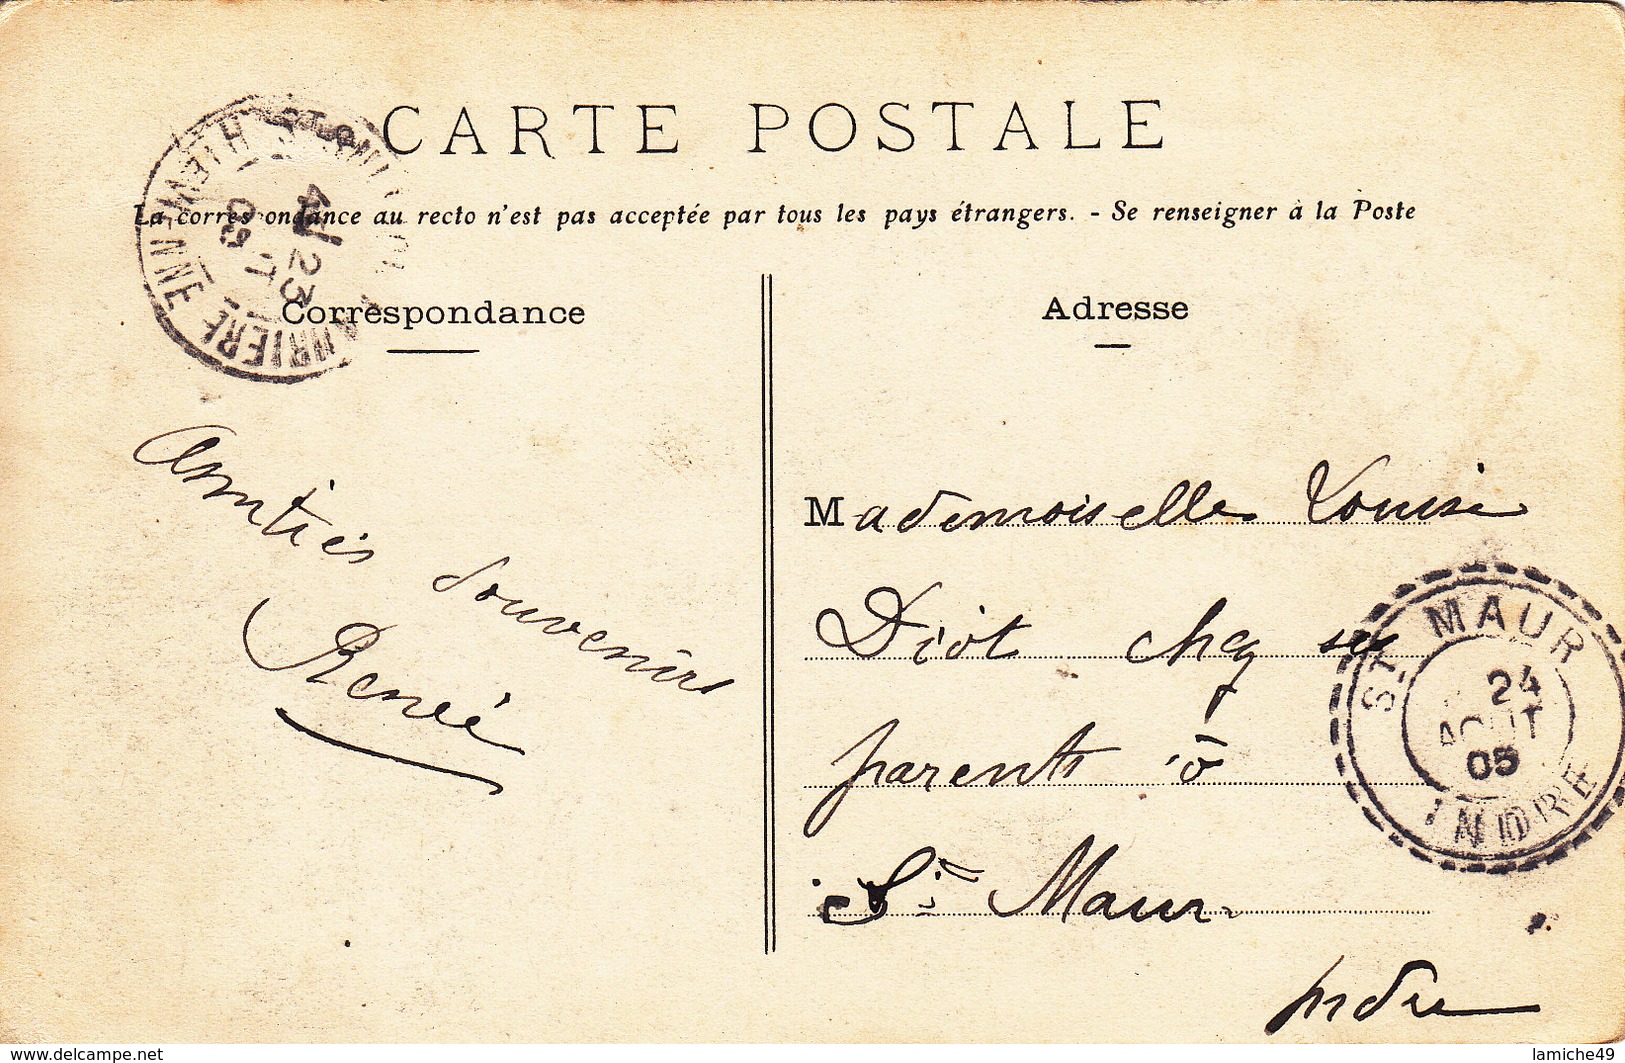 CARTE POSTALE
La correspondance au recto n'est pas acceptée par tous les pays étrangers. - Se renseigner à la Poste
Correspondance
Amitiés souvenirs
Renée
Adresse
Mademoiselle Louise
Diot chez ses
parents à
St Maur
Indre
ST MAUR
24
AOUT
05
INDRE
23
05
VIENNE
lamiche49